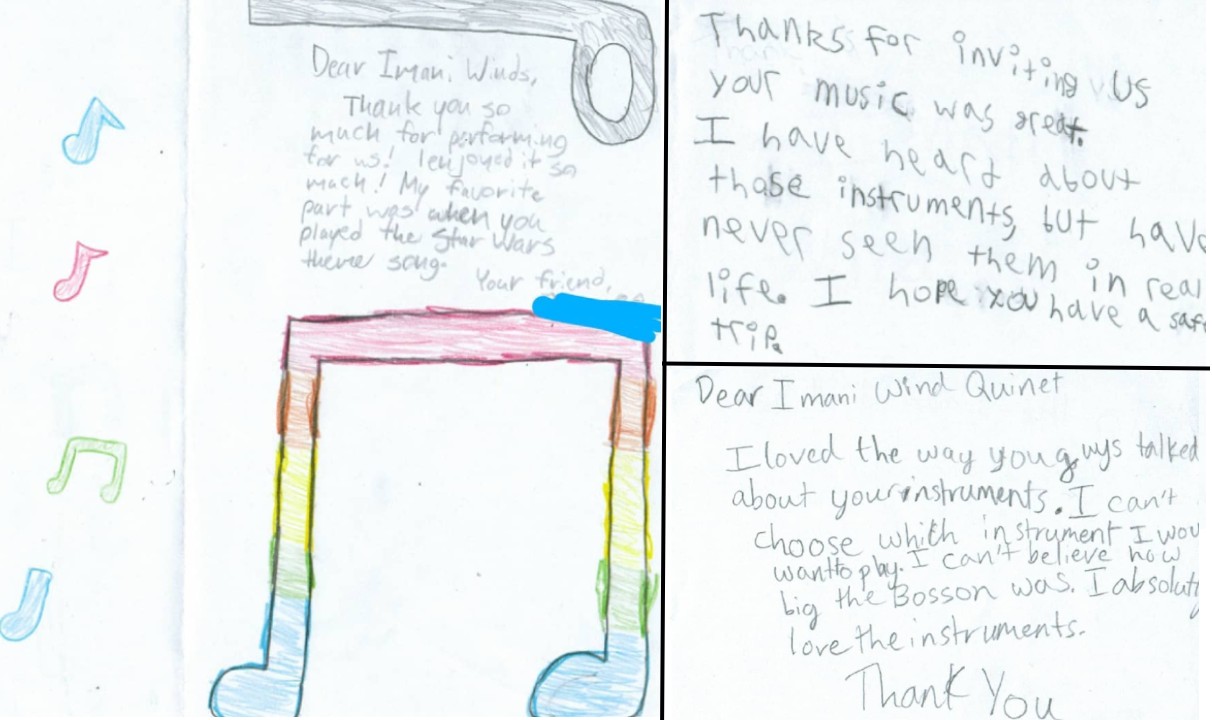 Dear Imani Winds,
Thank you so
much for performing
for us! I enjoyed it so
much! My favorite
part was when you
played the Star Wars
theme song.
Your friend,
Thanks for inviting us
your music was great.
I have heard about
those instruments, but have
never seen them in real
life. I hope you have a safe
trip.
Dear Imani Wind Quinet
I loved the way you guys talked
about your instruments. I can't
choose which instrument I wou
want to play. I can't believe how
big the Bosson was. I absoluty
love the instruments.
Thank You